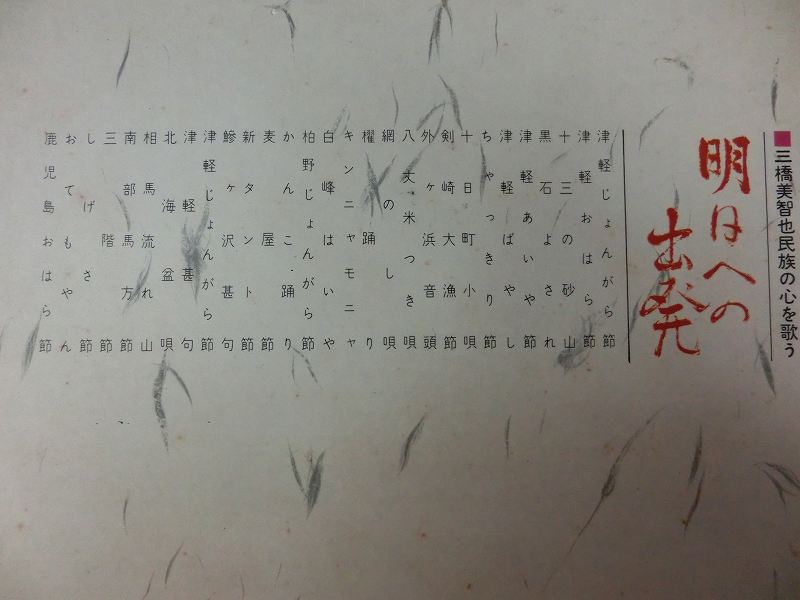 ■三橋美智也民族の心を歌う
明日への
出発
津軽じょんがら節
津軽おはら節
十三の砂山
黒石よされ
津軽あいや節
津軽ばやし
ちゃっきり節
十日町小唄
剣崎大漁節
外ヶ浜音頭
八丈米つき唄
網のし唄
櫂踊り
キンニヤモニヤ
白峰はいや
柏野じょんがら節
かんこ踊り
麦屋節
新タント節
鰺ヶ沢甚句
津軽じょんがら節
津軽甚句
北海盆唄
相馬流れ山
南部馬方節
三階節
しげさ節
おてもやん
鹿児島おはら節